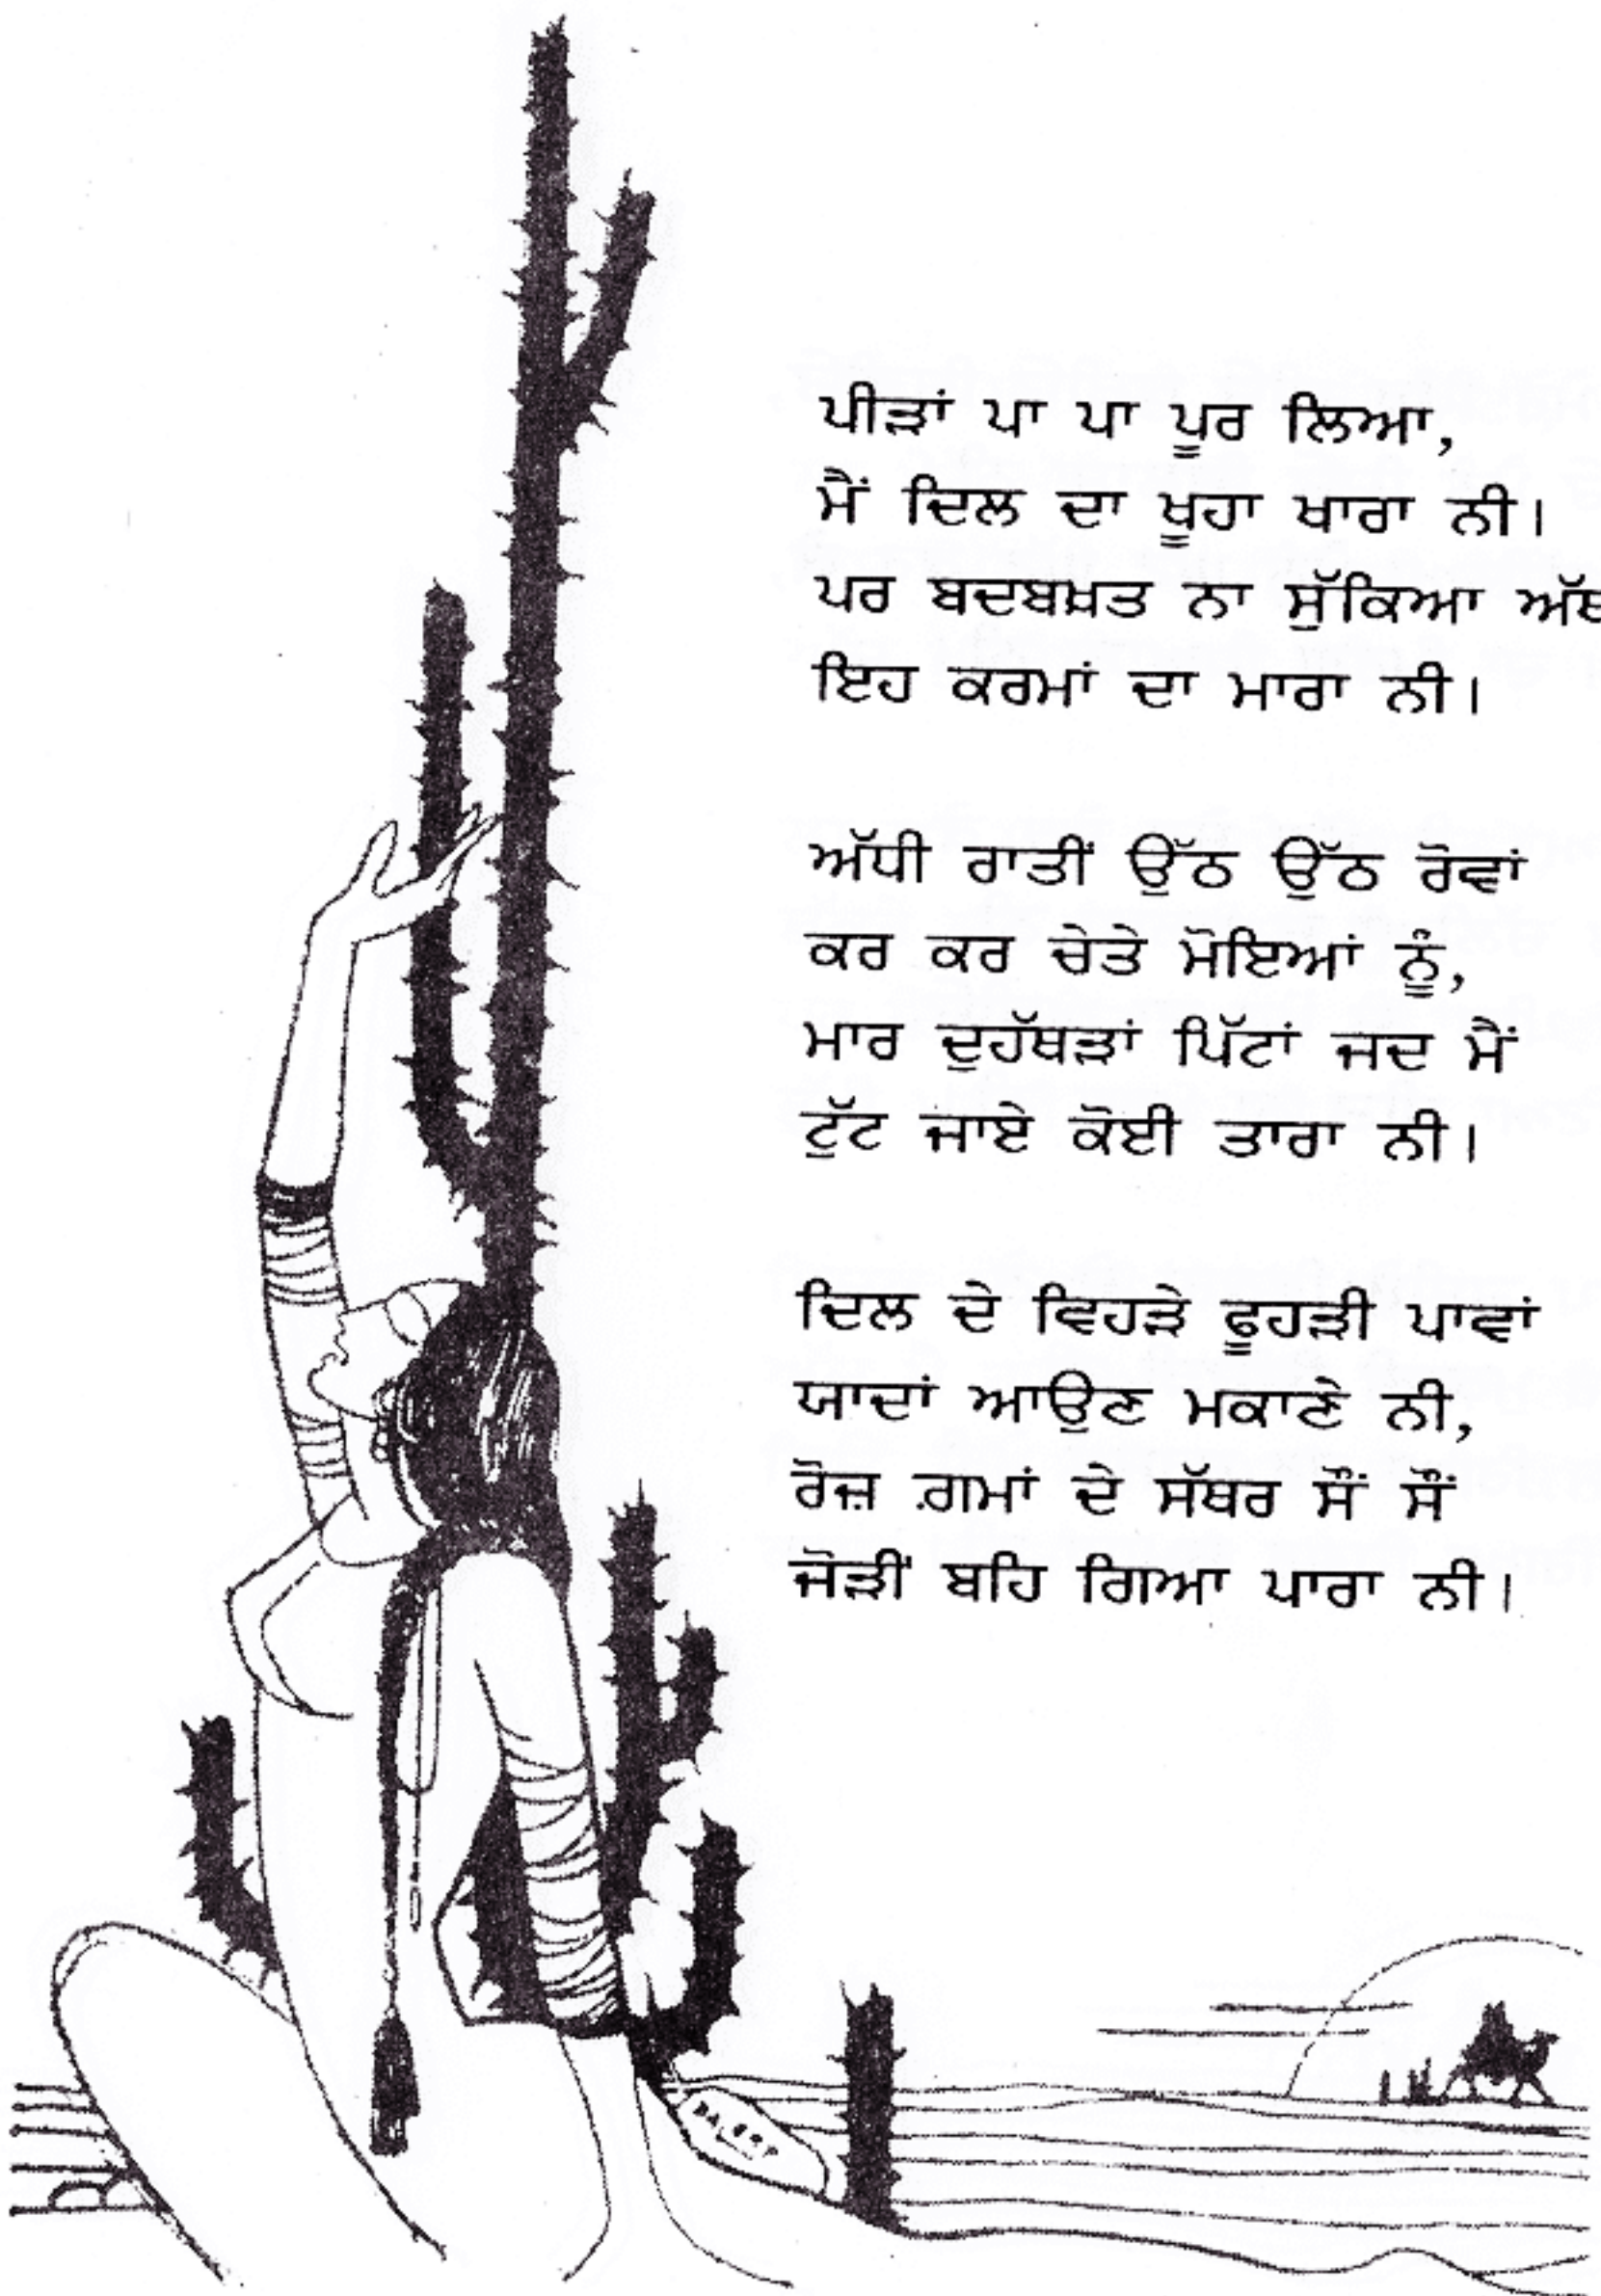 ਪੀੜਾਂ ਪਾ ਪਾ ਪੂਰ ਲਿਆ,
ਮੈਂ ਦਿਲ ਦਾ ਖੂਹਾ ਖਾਰਾ ਨੀ।
ਪਰ ਬਦਬਖ਼ਤ ਨਾ ਸੁੱਕਿਆ
ਇਹ ਕਰਮਾਂ ਦਾ ਮਾਰਾ ਨੀ।
ਅੱਧੀ ਰਾਤੀਂ ਉੱਠ ਉੱਠ ਰੋਵਾਂ
ਕਰ ਕਰ ਚੇਤੇ ਮੋਇਆਂ ਨੂੰ,
ਮਾਰ ਦੁਹੱਥੜਾਂ ਪਿੱਟਾਂ ਜਦ ਮੈਂ
ਟੁੱਟ ਜਾਏ ਕੋਈ ਤਾਰਾ ਨੀ।
ਦਿਲ ਦੇ ਵਿਹੜੇ ਫੂਹੜੀ ਪਾਵਾਂ
ਯਾਦਾਂ ਆਉਣ ਮਕਾਣੇ ਨੀ,
ਰੋਜ਼ ਗ਼ਮਾਂ ਦੇ ਸੱਥਰ ਸੌਂ ਸੌਂ
ਜੋੜੀਂ ਬਹਿ ਗਿਆ ਪਾਰਾ ਨੀ।